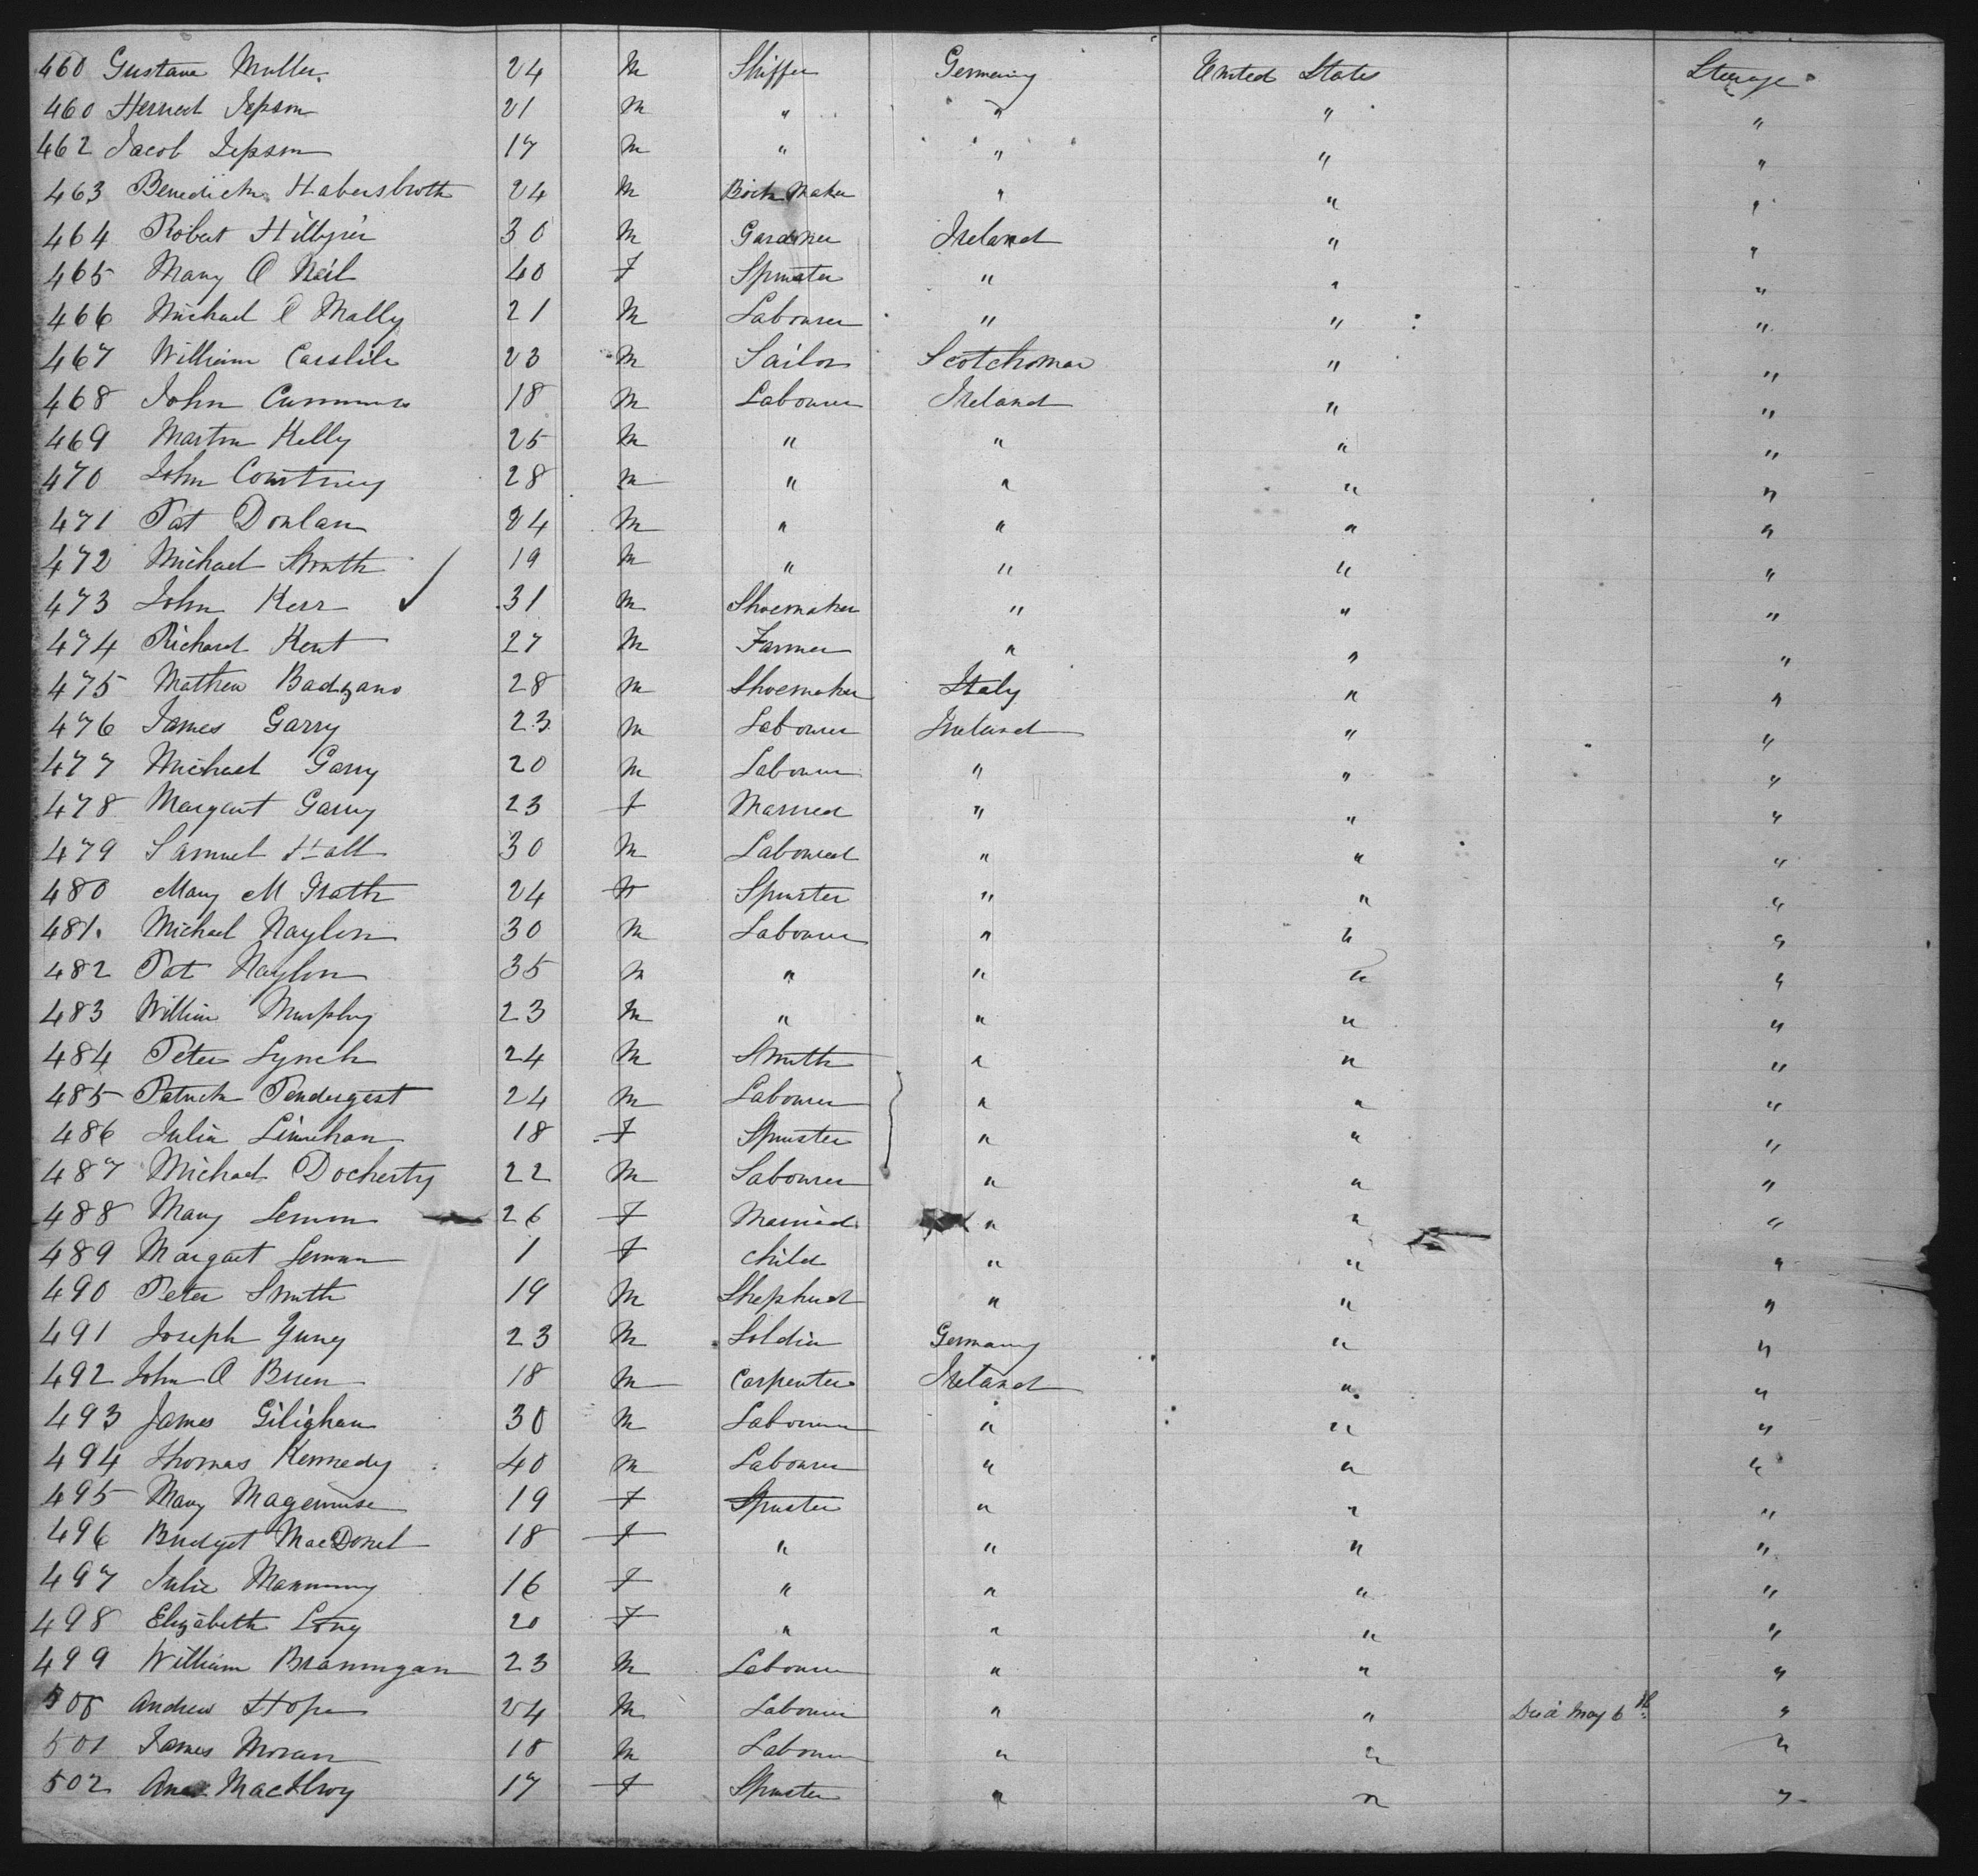 460 Gustava Muller 24 M Shiffer Germany United States Steerage
460 Jepson 21 M " " " "
462 Jacob Jepson 17 M " " " "
463 Benedict 24 M Maker " " "
464 Robert 30 M Gardner Ireland " "
465 Mary O Neil 40 F Spinster " " "
466 Michael O Mally 21 M Labourer " " "
467 William Carslile 23 M Sailor Scotchman " "
468 John Cummins 18 M Labourer Ireland " "
469 Martin Kelly 25 M " " " "
470 John Courtney 28 M " " " "
471 Pat Donlan 24 M " " " "
472 Michael Smith 19 M " " " "
473 John Kerr ✓ 31 M Shoemaker " " "
474 Richard Kent 27 M Farmer " " "
475 Mathew Badzano 28 M Shoemaker Italy " "
476 James Garry 23 M Labourer Ireland " "
477 Michael Garry 20 M Labourer " " "
478 Margaret Garry 23 F Married " " "
479 Samuel Hall 30 M Laboured " " "
480 Mary M Grath 24 F Spinster " " "
481. Michael Naylon 30 M Labourer " " "
482 Pat Naylon 35 M " " " "
483 William Murphy 23 M " " " "
484 Peter Lynch 24 M Smith " " "
485 Patrick Pendergast 24 M Labourer " " "
486 Julia Linnehan 18 F Spinster " " "
487 Michael Docherty 22 M Labourer " " "
488 Mary Lemon 26 F Married " " "
489 Margaet Lemon 1 F Child " " "
490 Peter Smith 19 M Shepherd " " "
491 Joseph Yung 23 M Soldier Germany " "
492 John O Brien 18 M Carpenter Ireland " "
493 James Gilighan 30 M Labourer " " "
494 Thomas Kennedy 40 M Labourer " " "
495 Mary 19 F Spinster " " "
496 Bridget MacDonel 18 F " " " "
497 Julia Manning 16 F " " " "
498 Elizabeth Long 20 F " " " "
499 William Brannigan 23 M Labourer " " "
500 Andrew Hope 24 M Labourer " " Died May 6th "
501 James Moran 18 M Labourer " " "
502 Ann MacIlroy 17 F Spinster " " "